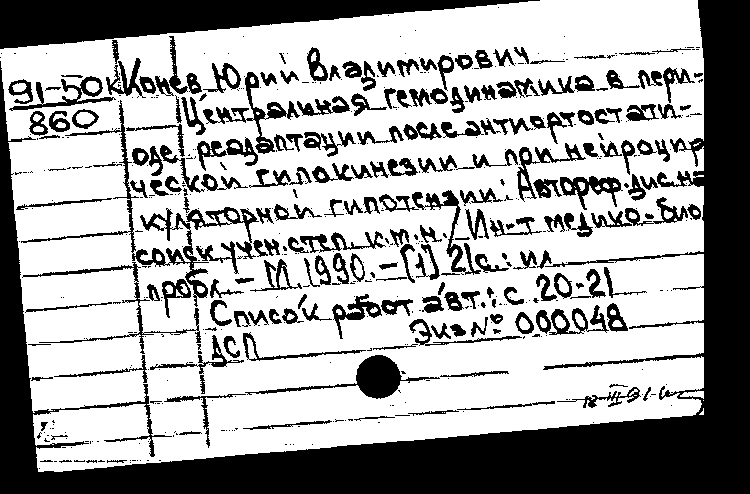 91-50к Конев Юрий Владимирович
860
Центральная гемодинамика в пери-
оде реадаптации после антиортостати-
ческой гипокинезии и при нейроцир
куляторной гипотензии: Автореф.дис.на
соиск.учен.степ. к.м.н./Ин-т медико-био
пробл. - М. 1990. - [1] 21с.: ил
Список работ авт.: с. 20-21
ДСП Экз № 000048
18-III-91